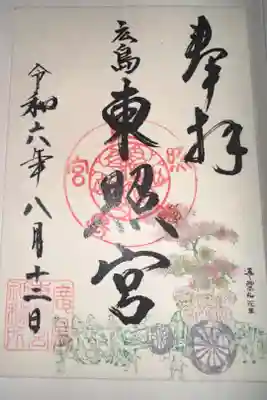 奉拝
広島
東照宮
令和六年八月十二日